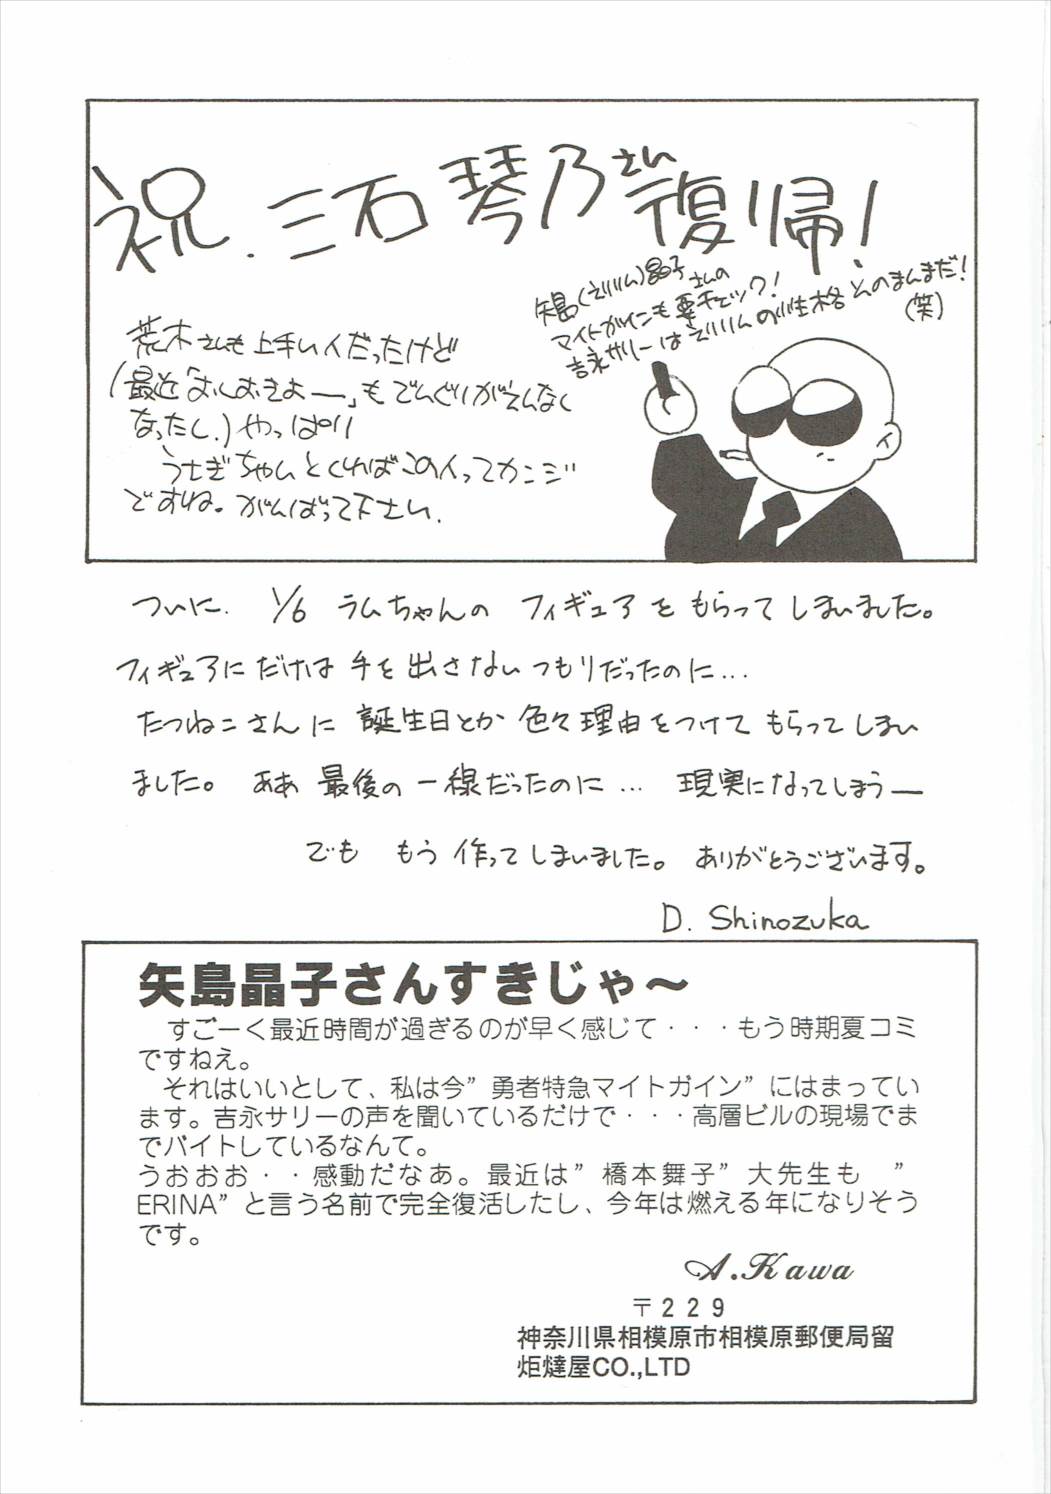 祝.三石琴乃さん復帰!
矢島(えりりん)晶子さんの
マイトガインも要チェック!
吉永サリーはえりりんの性格そのまんまだ!
(笑)
荒木さんも上手い人だったけど
(最近「おしおきよー」もでんぐりがえんなく
なったし.)やっぱり
うさぎちゃんとくればこの人ってカンジ
ですね。がんばって下さい.
ついに. 1/6 ラムちゃんの フィギュアを もらって しまいました。
フィギュアにだけは 手を 出さない つもりだったのに...
たつねこさんに 誕生日とか 色々理由をつけて もらって しまい
ました。 ああ 最後の 一線だったのに... 現実になってしまうー
でも もう 作って しまいました。 ありがとうございます。
D. Shinozuka
矢島晶子さんすきじゃ～
すごーく最近時間が過ぎるのが早く感じて・・・もう時期夏コミ
ですねえ。
それはいいとして、私は今”勇者特急マイトガイン”にはまってい
ます。吉永サリーの声を聞いているだけで・・・高層ビルの現場でま
でバイトしているなんて。
うおおお・・感動だなあ。最近は”橋本舞子”大先生も ”
ERINA”と言う名前で完全復活したし、今年は燃える年になりそう
です。
A.Kawa
〒229
神奈川県相模原市相模原郵便局留
炬燵屋CO.,LTD